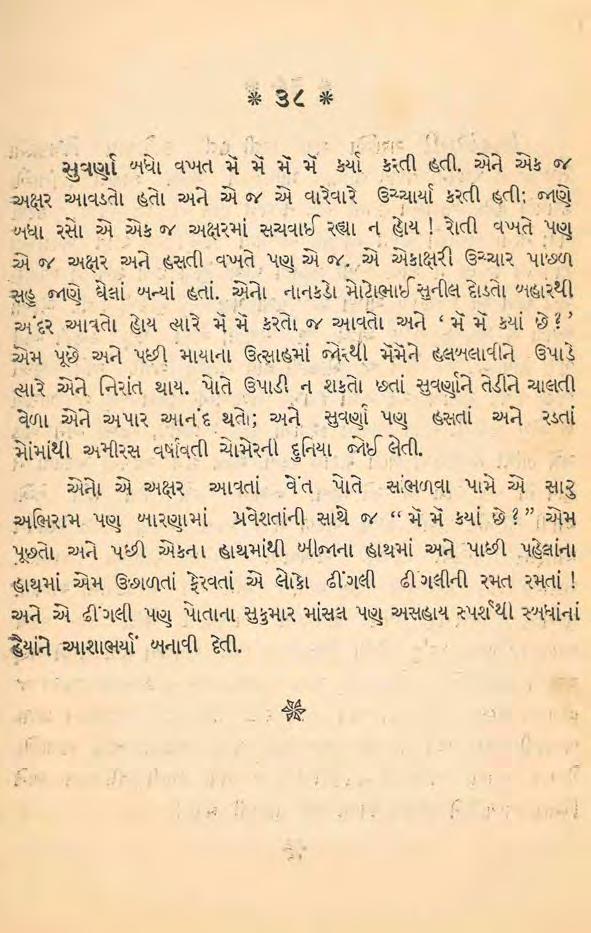 * ૩૮ *
સુવર્ણા બધો વખત મેં મેં મેં મેં કર્યા કરતી હતી. એને એક જ
અક્ષર આવડતો હતો અને એ જ એ વારેવારે ઉચ્ચાર્યા કરતી હતી; જાણે
બધા રસો એ એક જ અક્ષરમાં સચવાઈ રહ્યા ન હોય ! રોતી વખતે પણ
એ જ અક્ષર અને હસતી વખતે પણ એ જ. એ એકાક્ષરી ઉચ્ચાર પાછળ
સહુ જાણે ઘેલાં બન્યાં હતાં. એનો નાનકડો મોટોભાઈ સુનીલ દોડતો બહારથી
અંદર આવતો હોય ત્યારે મેં મેં કરતો જ આવતો અને ‘ મેં મેં કયાં છે ? ’
એમ પૂછે અને પછી માયાના ઉત્સાહમાં જોરથી મેંમેંને હલબલાવીને ઉપાડે
ત્યારે એને નિરાંત થાય. પોતે ઉપાડી ન શકતો છતાં સુવર્ણાને તેડીને ચાલતી
વેળા એને અપાર આનંદ થતો; અને સુવર્ણા પણ હસતાં અને રડતાં
મોંમાંથી અમીરસ વર્ષાવતી ચોમેરની દુનિયા જોઈ લેતી.
એનો એ અક્ષર આવતાં વેંત પોતે સાંભળવા પામે એ સારુ
અભિરામ પણ બારણામાં પ્રવેશતાંની સાથે જ “ મેં મેં કયાં છે ? ” એમ
પૂછતો અને પછી એકના હાથમાંથી બીજાના હાથમાં અને પાછી પહેલાંના
હાથમાં એમ ઉછાળતાં ફેરવતાં એ લોકો ઢીંગલી ઢીંગલીની રમત રમતાં !
અને એ ઢીંગલી પણ પોતાના સુકુમાર માંસલ પણ અસહાય સ્પર્શથી સ્બધાંનાં
હૈયાંને આશાભર્યાં બનાવી દેતી.